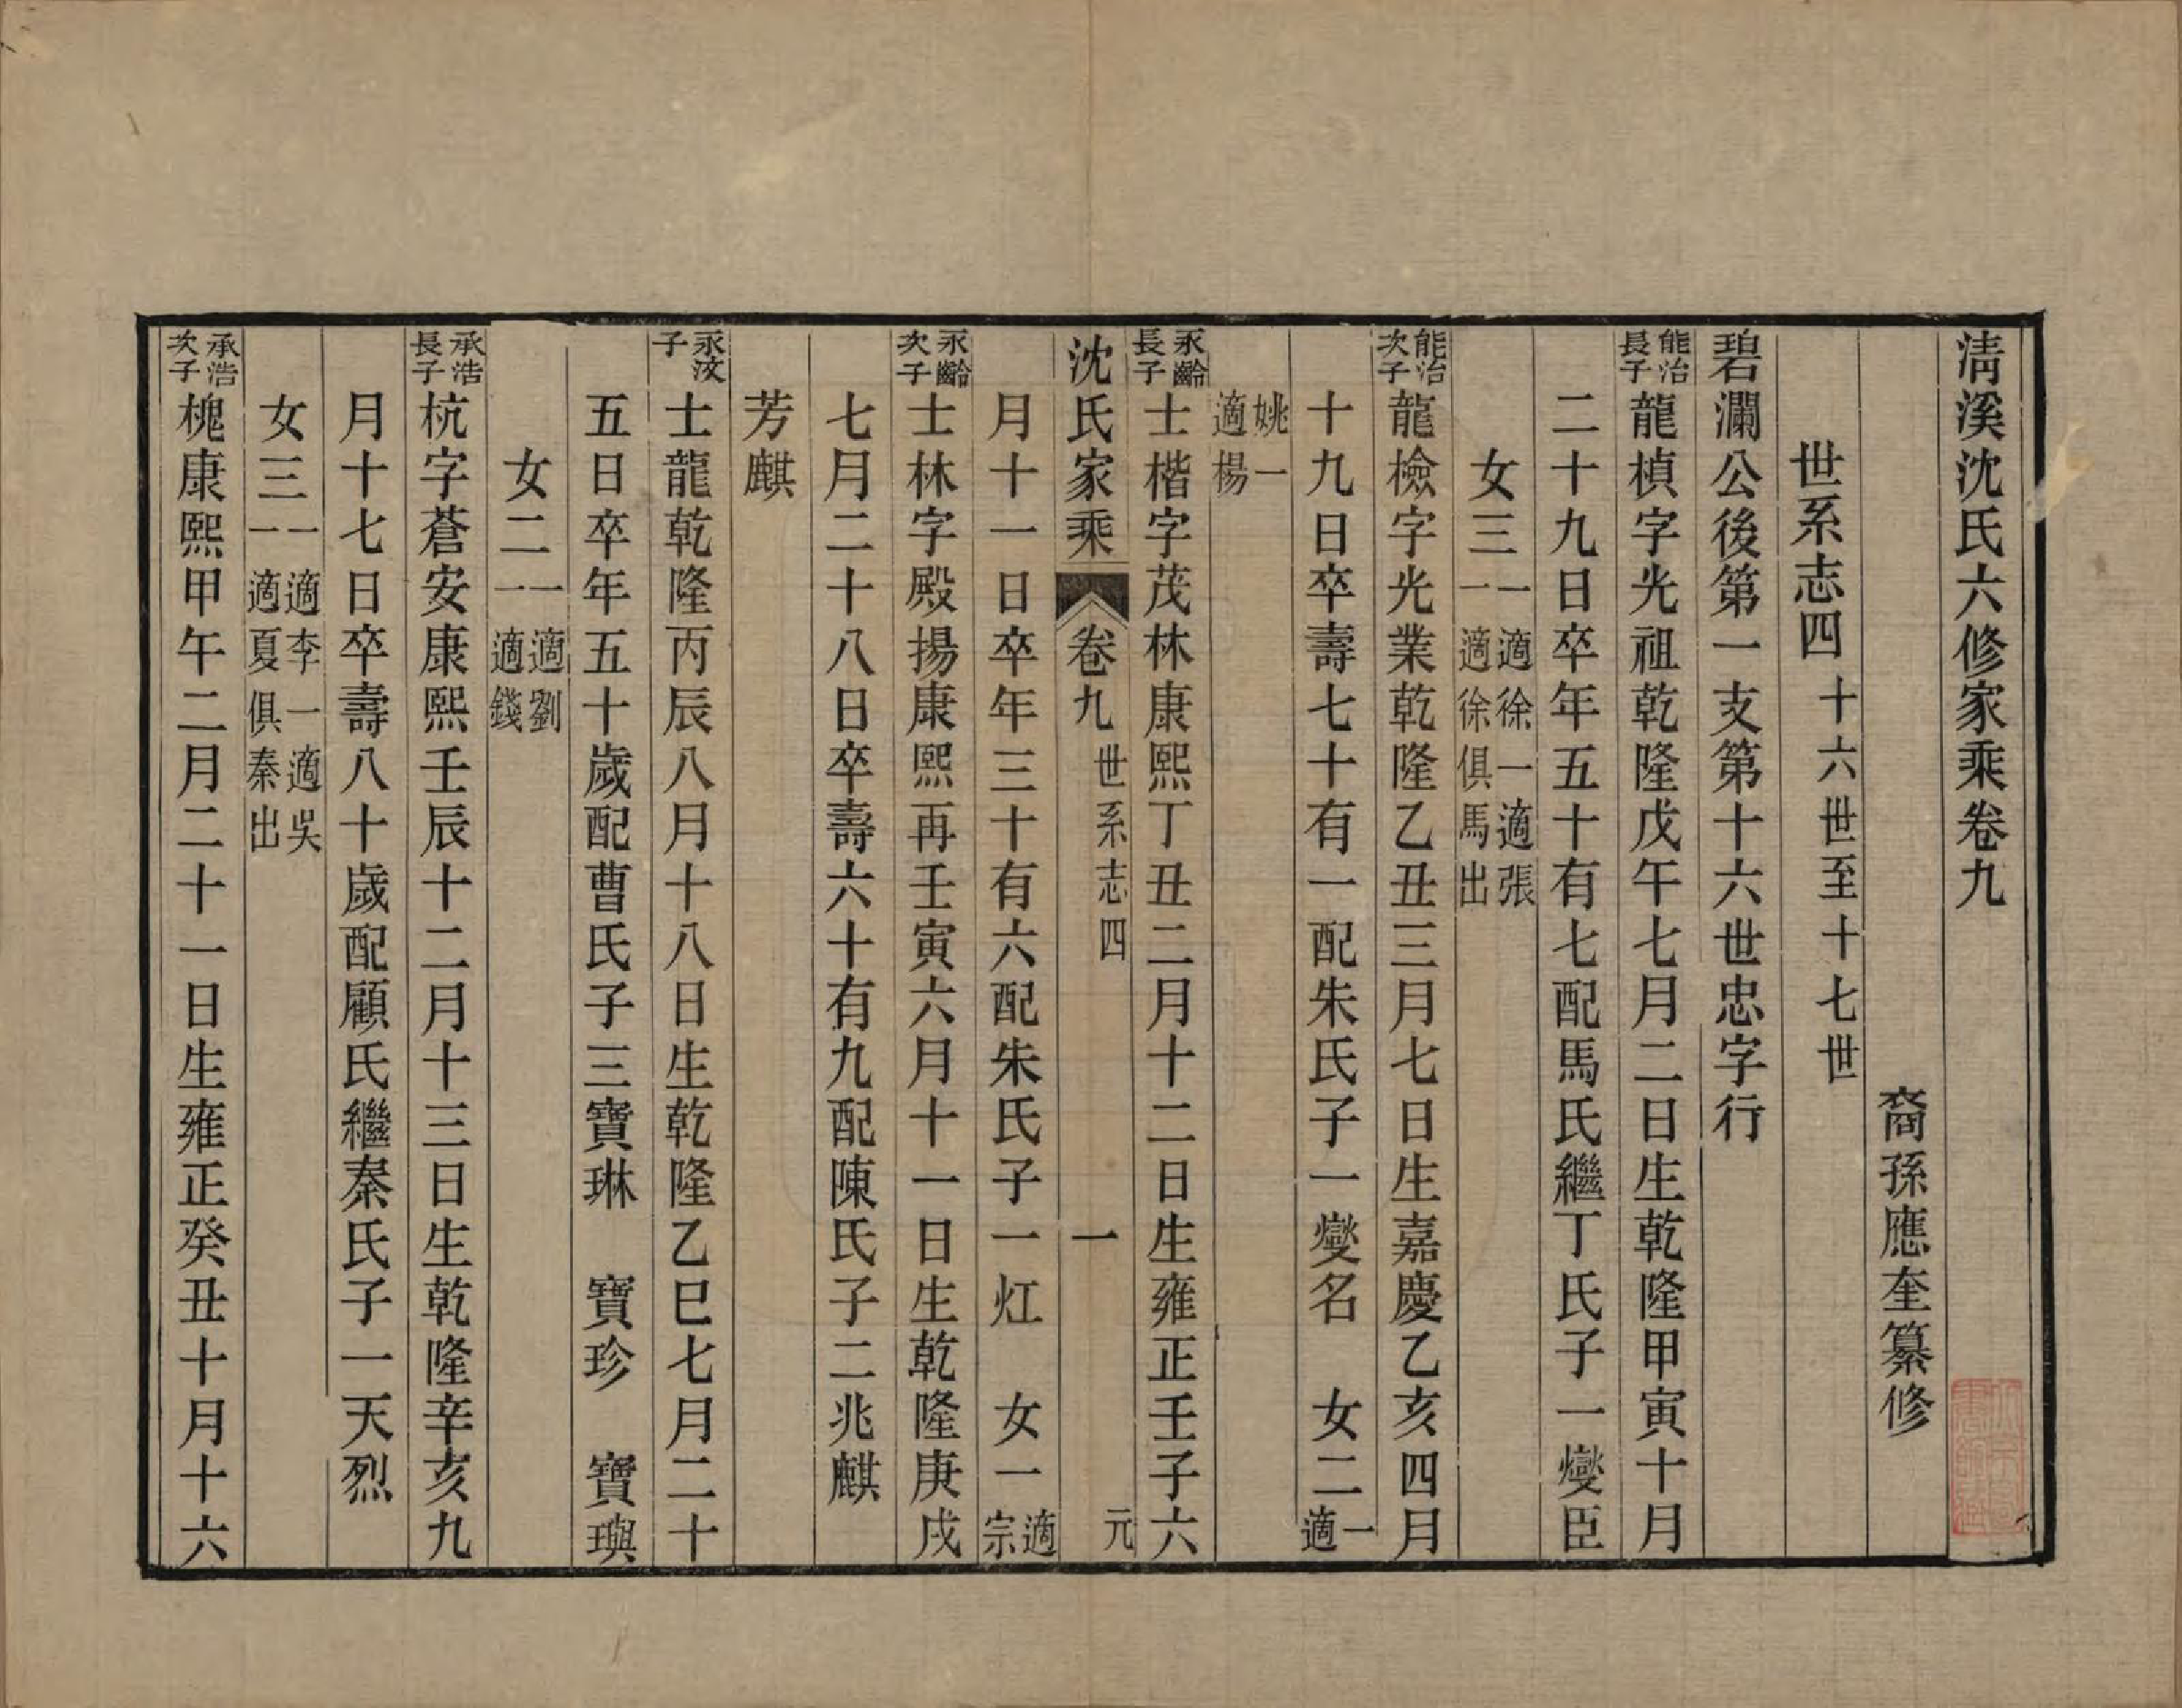 清溪沈氏六修家乘卷九
裔孫應奎纂修
世系志四 十六世至十七世
碧瀾公後第一支第十六世忠字行
能治長子 龍楨字光祖乾隆戊午七月二日生乾隆甲寅十月
二十九日卒年五十有七配馬氏繼丁氏子一燮臣
女三 一適徐一適張一適徐俱馬出
能治次子 龍檢字光業乾隆乙丑三月七日生嘉慶乙亥四月
十九日卒壽七十有一配朱氏子一燮名 女二 一適
姚一適楊
永齡長子 士楷字茂林康熙丁丑二月十二日生雍正壬子六
沈氏家乘 卷九 世系志四 一 元
月十一日卒年三十有六配朱氏子一灴 女一 適宗
永齡次子 士林字殿揚康熙再壬寅六月十一日生乾隆庚戌
七月二十八日卒壽六十有九配陳氏子二兆麒
芳麒
永汶子 士龍乾隆丙辰八月十八日生乾隆乙巳七月二十
五日卒年五十歲配曹氏子三寶琳 寶珍 寶璵
女二 一適劉一適錢
承浩長子 杭字蒼安康熙壬辰十二月十三日生乾隆辛亥九
月十七日卒壽八十歲配顧氏繼秦氏子一天烈
女三 一適李一適吳一適夏俱秦出
承浩次子 槐康熙甲午二月二十一日生雍正癸丑十月十六